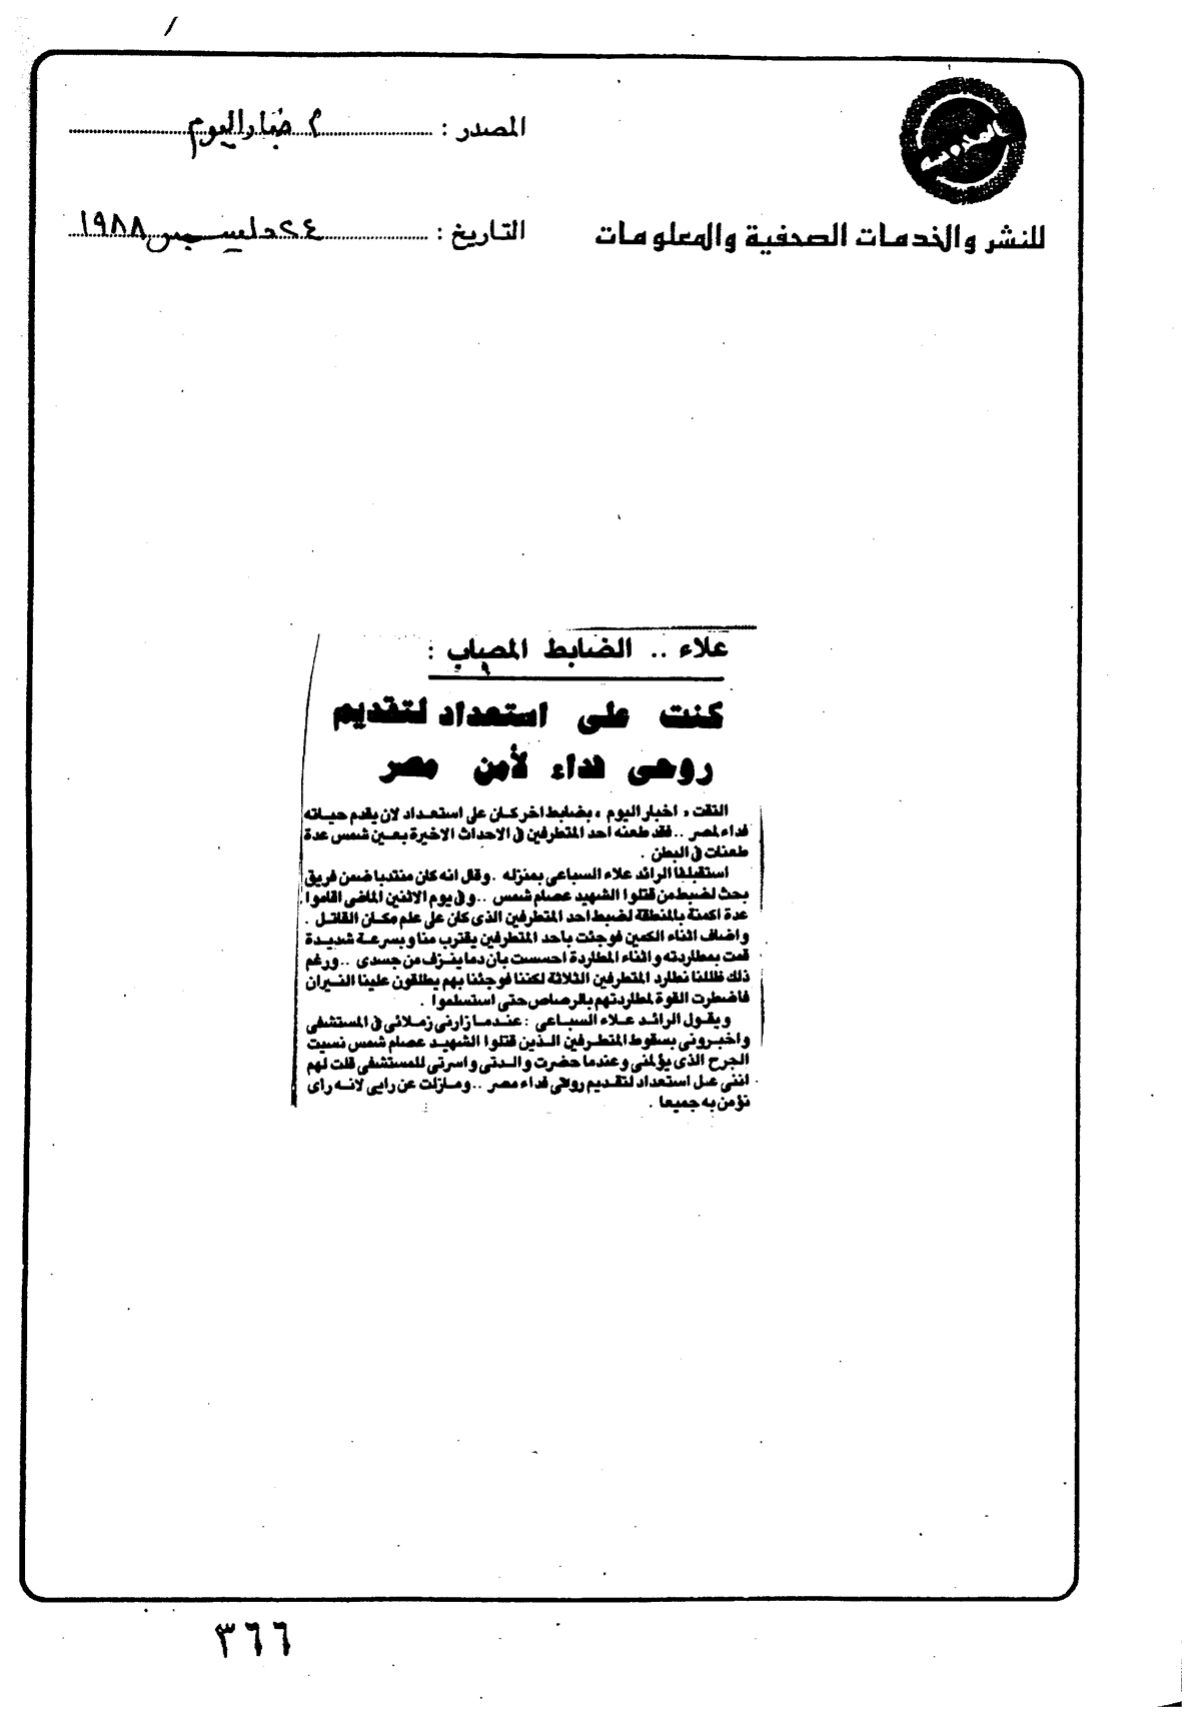 المصدر : أخبار اليوم
للنشر والخدمات الصحفية والمعلومات
التاريخ : ٢٤ ديسمبر ١٩٨٨
علاء .. الضابط المصاب :
كنت على استعداد لتقديم
روحى فداء لأمن مصر
التقت « اخبار اليوم » بضابط اخر كان على استعداد لان يقدم حياته
فداء لمصر .. فقد طعنه احد المتطرفين فى الاحداث الاخيرة بعين شمس عدة
طعنات فى البطن .
استقبلنا الرائد علاء السباعى بمنزله .. وقال انه كان منتدبا ضمن فريق
بحث لضبط من قتلوا الشهيد عصام شمس .. وفى يوم الاثنين الماضى اقاموا
عدة اكمنة بالمنطقة لضبط احد المتطرفين الذى كان على علم مكان القاتل .
واضاف اثناء الكمين فوجئت باحد المتطرفين يقترب منا وبسرعة شديدة
قمت بمطاردته واثناء المطاردة احسست بان دما ينزف من جسدى .. ورغم
ذلك ظللنا نطارد المتطرفين الثلاثة لكننا فوجئنا بهم يطلقون علينا النيران
فاضطرت القوة لمطاردتهم بالرصاص حتى استسلموا .
ويقول الرائد علاء السباعى : عندما زارنى زملائى فى المستشفى
واخبرونى بسقوط المتطرفين الذين قتلوا الشهيد عصام شمس نسيت
الجرح الذى يؤلمنى وعندما حضرت والدتى واسرتى للمستشفى قلت لهم
اننى على استعداد لتقديم روحى فداء مصر .. ومازلت عن رايى لانه راى
نؤمن به جميعا .
٣٦٦